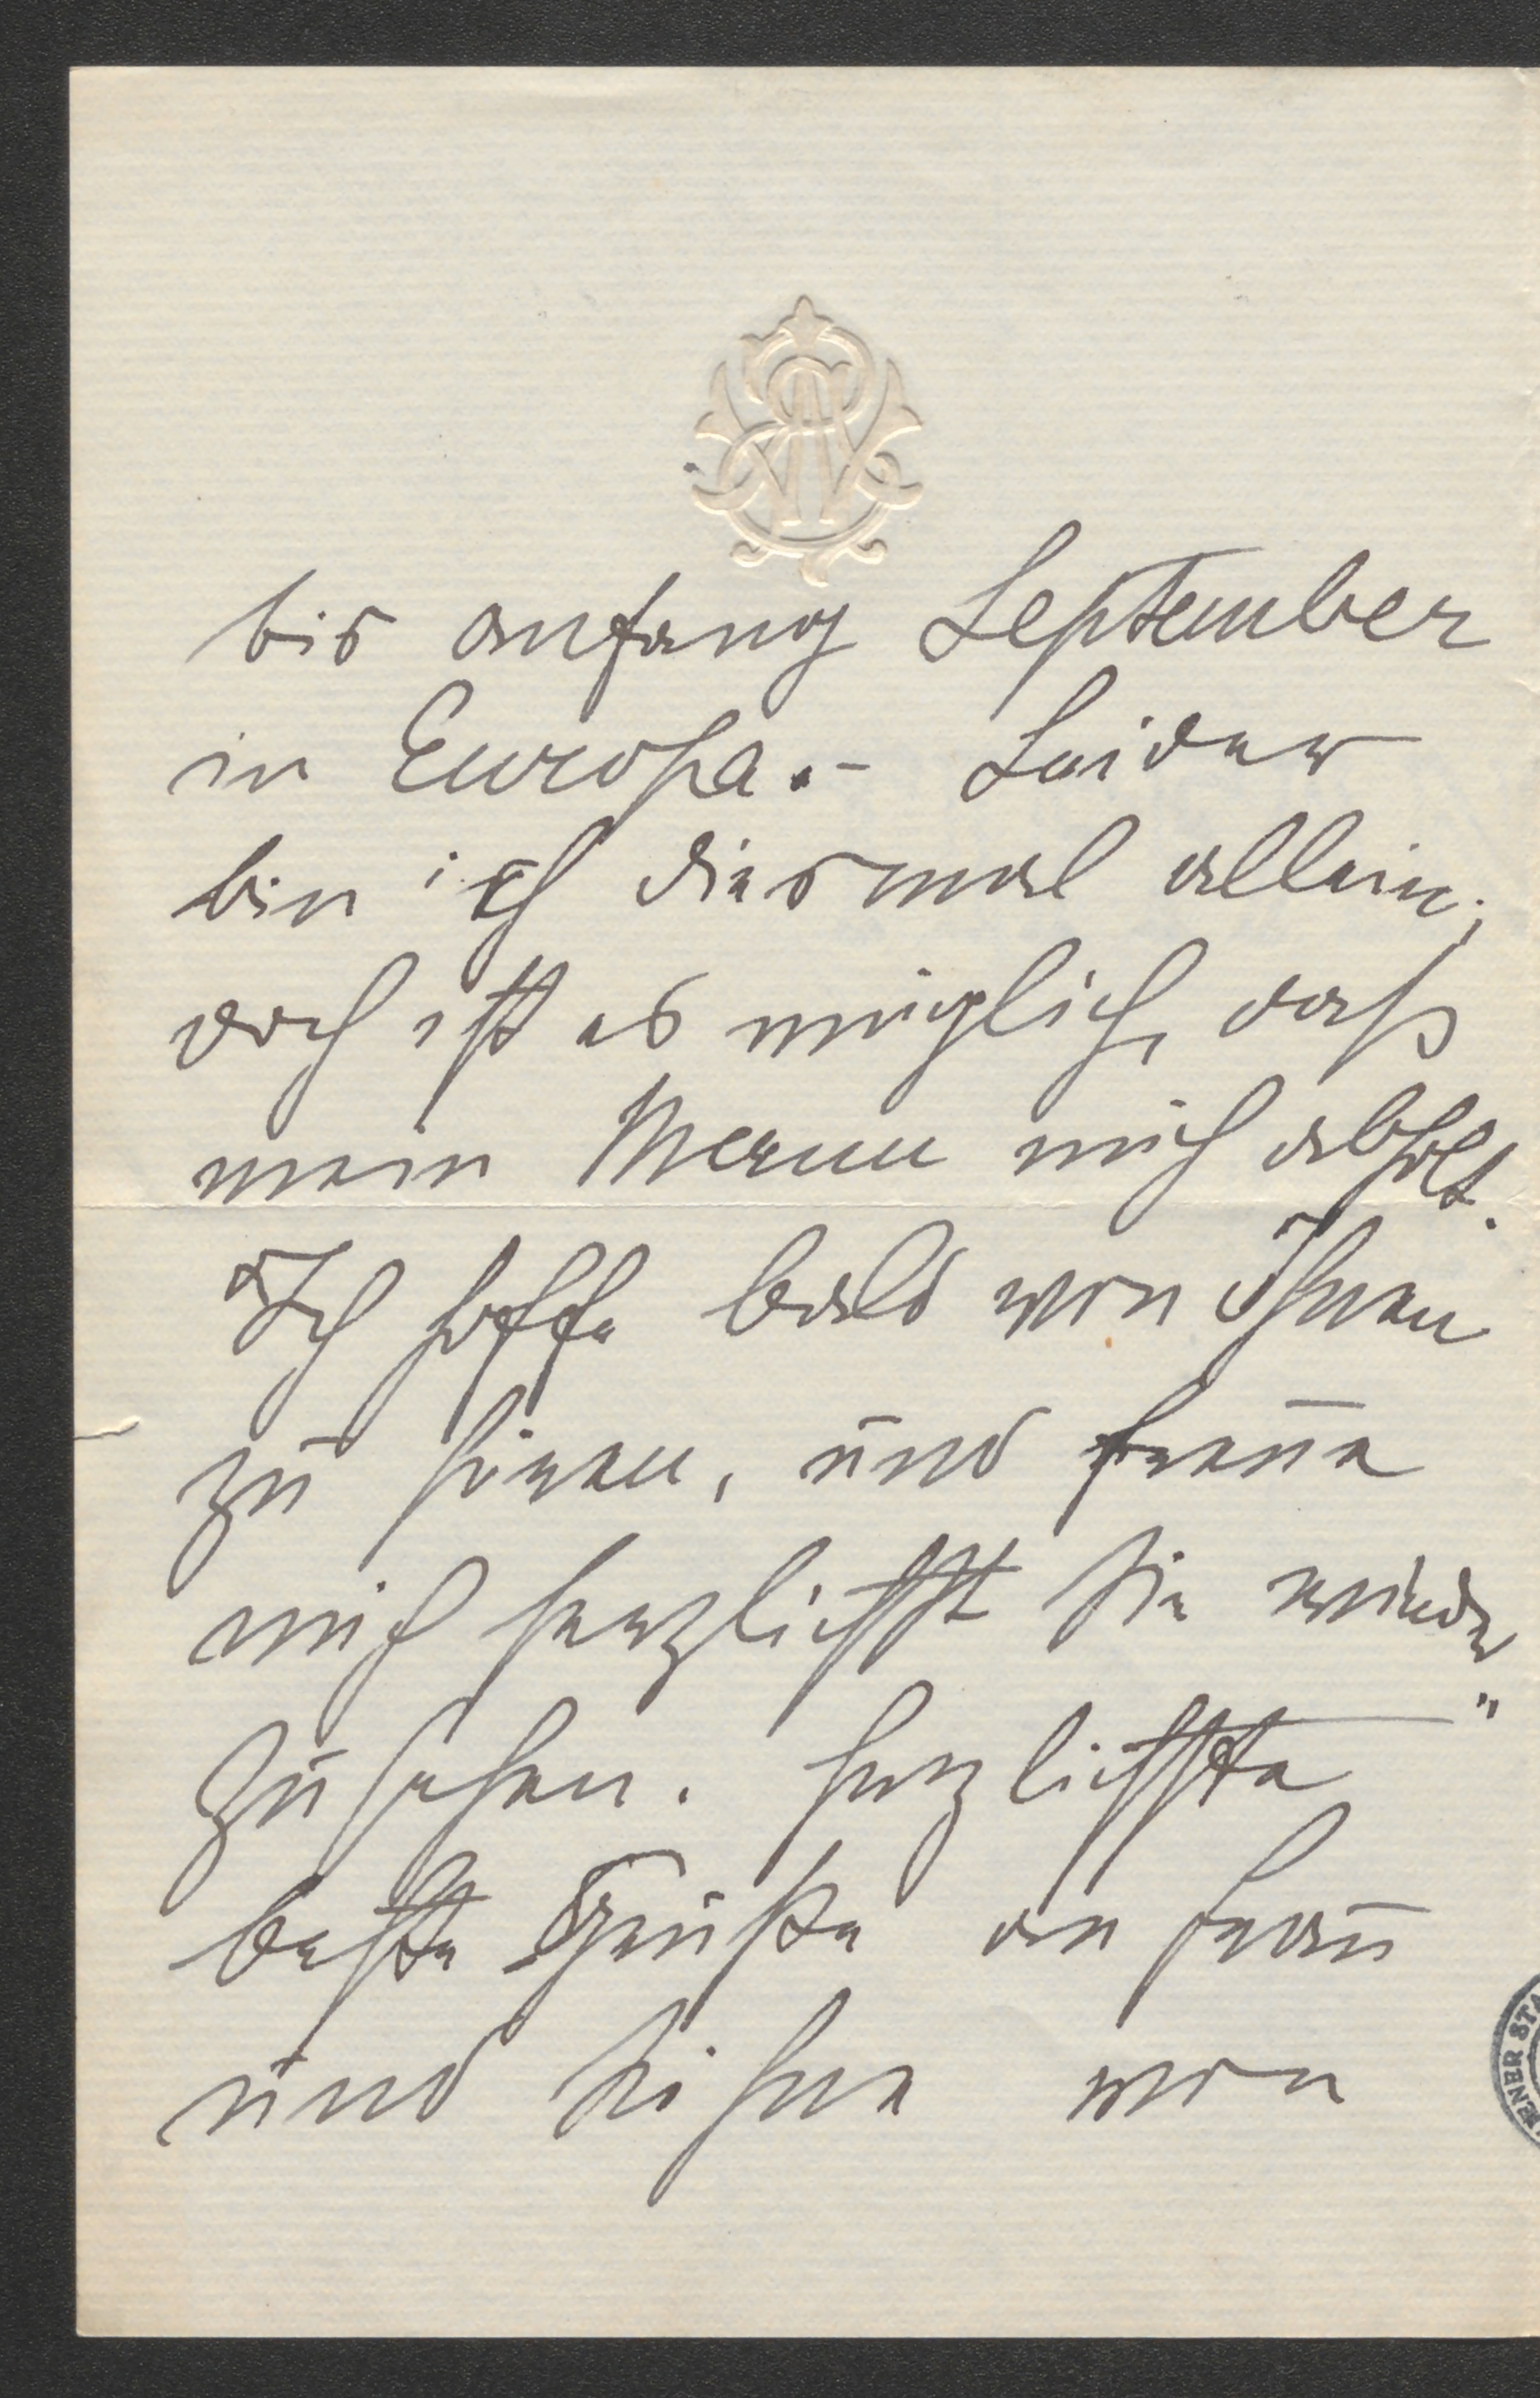 bis anfang September
in Europa.- Leider
bin ich diesmal allein;
doch ist es möglich, daß
mein Mann mich abholt.
Ich hoffe bald von Ihnen
zu hören, und freue
mich herzlichst Sie wieder"
zu sehen. Herzlichste
beste Grüße an Frau
und Söhne von